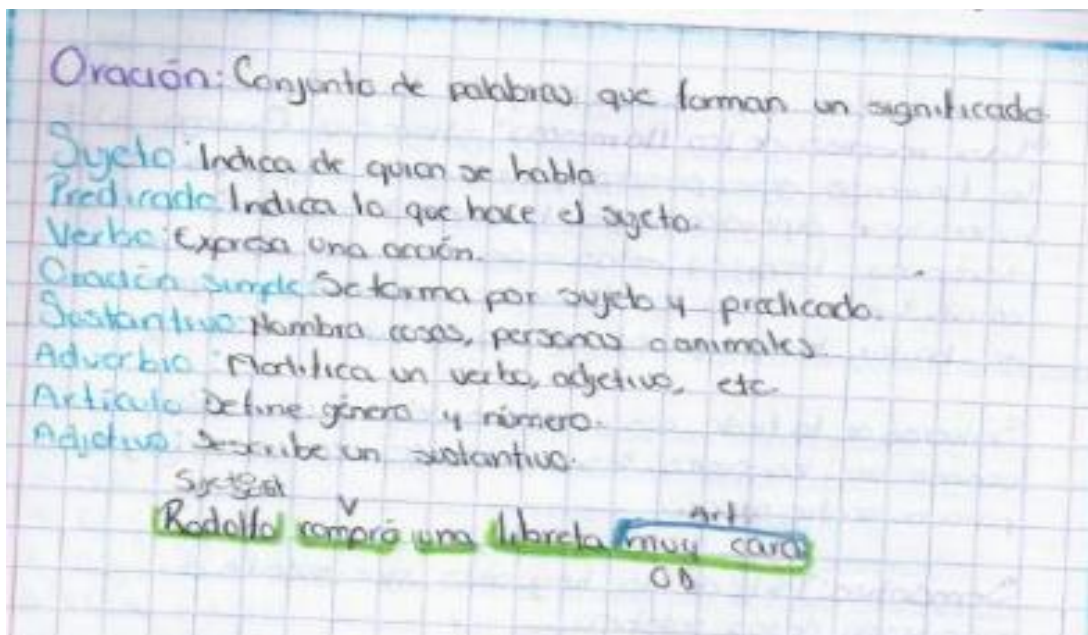 Oración: Conjunto de palabras que forman un significado.
Sujeto: Indica de quien se habla.
Predicado: Indica lo que hace el sujeto.
Verbo: Expresa una acción.
Oración simple: Se forma por sujeto y predicado.
Sustantivo: Nombra cosas, personas o animales.
Adverbio: Modifica un verbo, adjetivo, etc.
Artículo: Define género y número.
Adjetivo: Describe un sustantivo.
V Art
Rodolfo compró una libreta muy cara
OD